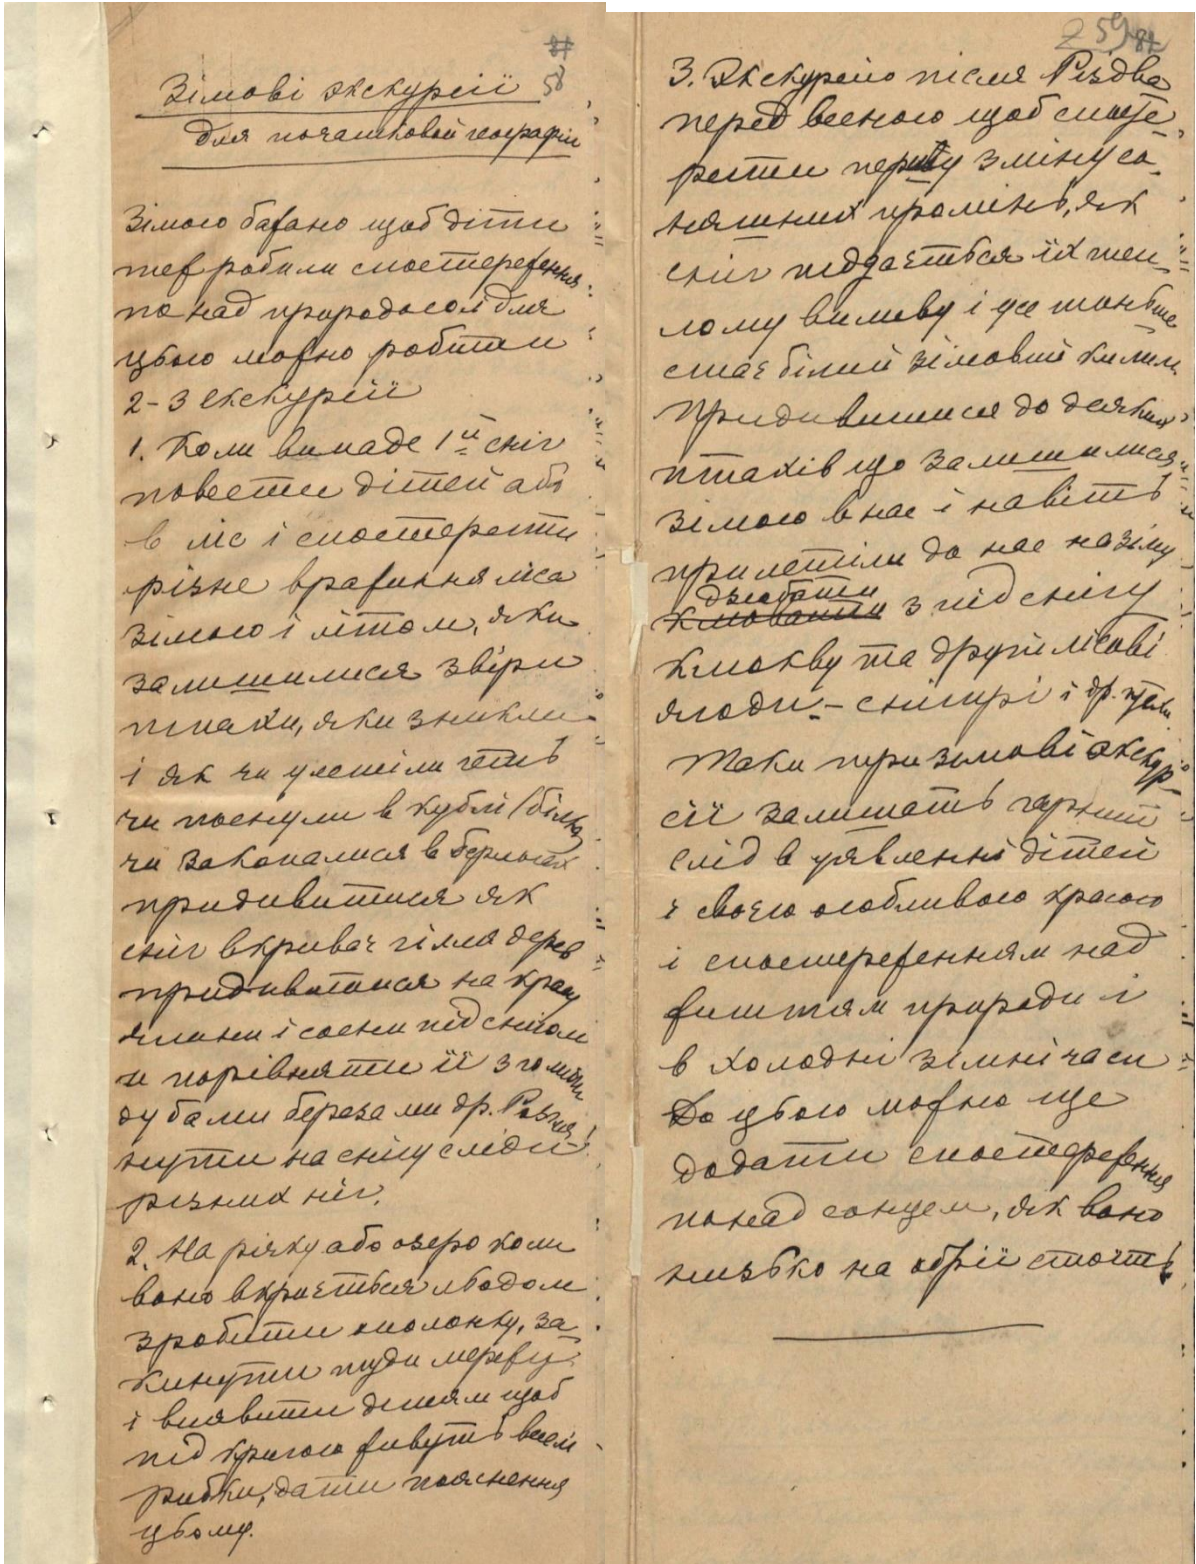 58
Зімові экскурсіі
для початковой географіи
Зімою бажано щоб діти
теж робили спостереження
понад природою для
цього можно робити
2-3 екскурсіі
1. Коли випаде 1й сніг
повести дітей або
в ліс і спостерегти
різне враження ліса
зімою і літом, яки
залишилися звіри
птахи, яки зникли
і як чи улетіли геть
чи поснули в кублі (білка
чи закопалися в берлогах
придивитися як
сніг вкриває гілля дерев
придивитися на красу
ялини і сосни під снігом
и порівняти ії з голими
дубами березами др. Розгля
нути на снігу сліди
різних ніг.
2. На річку або озеро коли
воно вкриється льодом
зробити ополонку, за-
кинути туди мережу
і виявити дітям щоб
під кригою живуть
рибки, дати пояснення
цьому.
259
3. Экскурсію після Різдва
перед весною щоб спосте-
регти першу зміну со-
няшних промінь, як
сніг піддається іх теп-
лому впливу і усе тоньше
стає білий зімовий килим.
Придивитися до деяких
птахів що залишилися
зімою в нас і навіть
прилетіли до нас на зіму
дзюбати
клювати з під снігу
клюкву та другі лісові
ягоди – снігирі і др.
Таки три зімові экскур-
сіі залишать гарний
слід в уявленні дітей
є своєю особливою красою
і спостереженням над
життям природи і
в холодні зімні часи
До цього можно ще
додати спостереження
понад сонцем, як воно
низько на обріі стоить